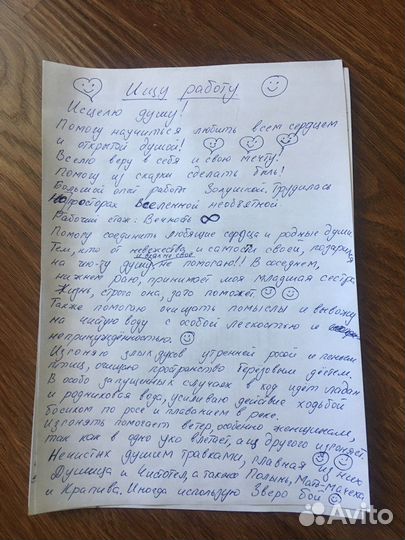 Ищу работу
Исцелю душу!
Помогу научиться любить всем сердцем
и открытой душой!
Вселю веру в себя и свою мечту!
Помогу из сказки сделать быль!
Большой опыт работы Золушкой. Трудилась
На просторах Вселенной необъятной.
Рабочий стаж: Вечность ∞
Помогу соединить любящие сердца и родные души
Тем, кто от невежества и самости своей, позарился
и жадности
на чью-ту душу не помогаю!! В соседнем,
нижнем раю, принимает моя младшая сестра
Жизнь, строга она, зато поможет
Также помогаю очищать помыслы и вывожу
на чистую воду с особой легкостью и
непринуждённостью.
Изгоняю злых духов утренней росой и пением
птиц, очищаю пространство берёзовым дёгтем
В особо запущенных случаях в ход идет ладан
и родниковая вода, усиливаю действие ходьбой
босиком по росе и плаванием в реке.
Изгонять помогает ветер, особенно женщинам,
так как в одно ухо влетает, а из другого изгоняет
Нечистых душим травками, главная из них
Душица и Чистотел, а также Полынь, Мать-Мачеха,
и Крапива. Иногда использую Зверо бой
Avito